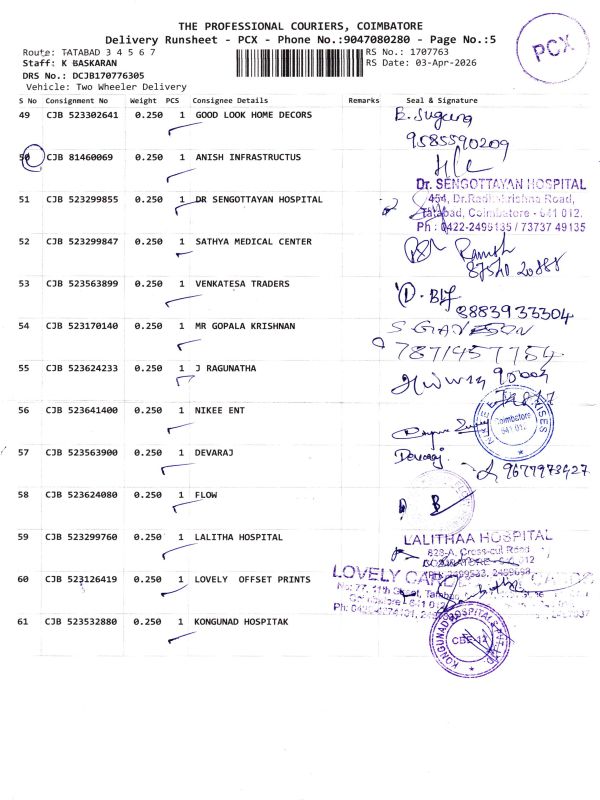 THE PROFESSIONAL COURIERS, COIMBATORE
Delivery Runsheet - PCX - Phone No.:9047080280 - Page No.:5
PCX
Route: TATABAD 3 4 5 6 7
RS No.: 1707763
Staff: K BASKARAN
RS Date: 03-Apr-2026
DRS No.: DCJB170776305
Vehicle: Two Wheeler Delivery
S No Consignment No Weight PCS Consignee Details Remarks Seal & Signature
49 CJB 523302641 0.250 1 GOOD LOOK HOME DECORS
9585590209
50 CJB 81460069 0.250 1 ANISH INFRASTRUCTUS
Dr. SENGOTTAYAN HOSPITAL
51 CJB 523299855 0.250 1 DR SENGOTTAYAN HOSPITAL
454, Dr.Radhakrishna Road,
Tatabad, Coimbatore - 641 012.
Ph : 0422-2495135 / 73737 49135
52 CJB 523299847 0.250 1 SATHYA MEDICAL CENTER
Ramesh
87540 20888
53 CJB 523563899 0.250 1 VENKATESA TRADERS
9883933304
54 CJB 523170140 0.250 1 MR GOPALA KRISHNAN
7871457754
55 CJB 523624233 0.250 1 J RAGUNATHA
56 CJB 523641400 0.250 1 NIKEE ENT
Coimbatore
641 012
57 CJB 523563900 0.250 1 DEVARAJ
Devaraj
9677973927
58 CJB 523624080 0.250 1 FLOW
59 CJB 523299760 0.250 1 LALITHA HOSPITAL
LALITHAA HOSPITAL
60 CJB 523126419 0.250 1 LOVELY OFFSET PRINTS
LOVELY CARD
61 CJB 523532880 0.250 1 KONGUNAD HOSPITAK
KONGUNAD HOSPITAL
CBE-12